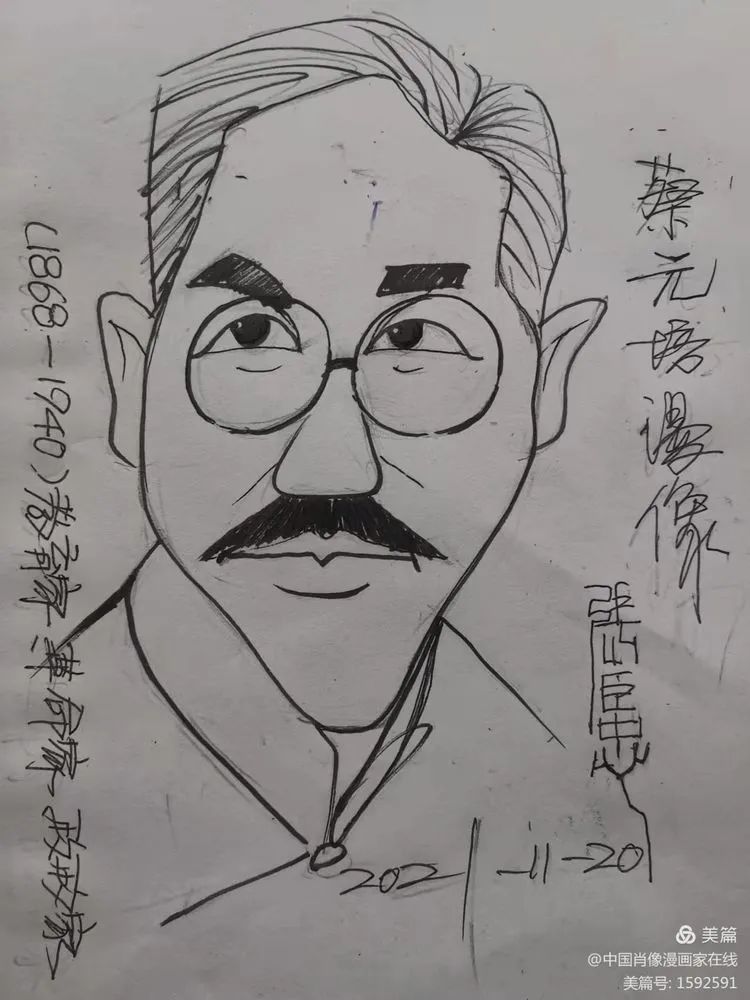 蔡元培漫像
(1868-1940)教育家、革命家、政治家
2021-11-20
美篇
@中国肖像漫画家在线
美篇号: 1592591